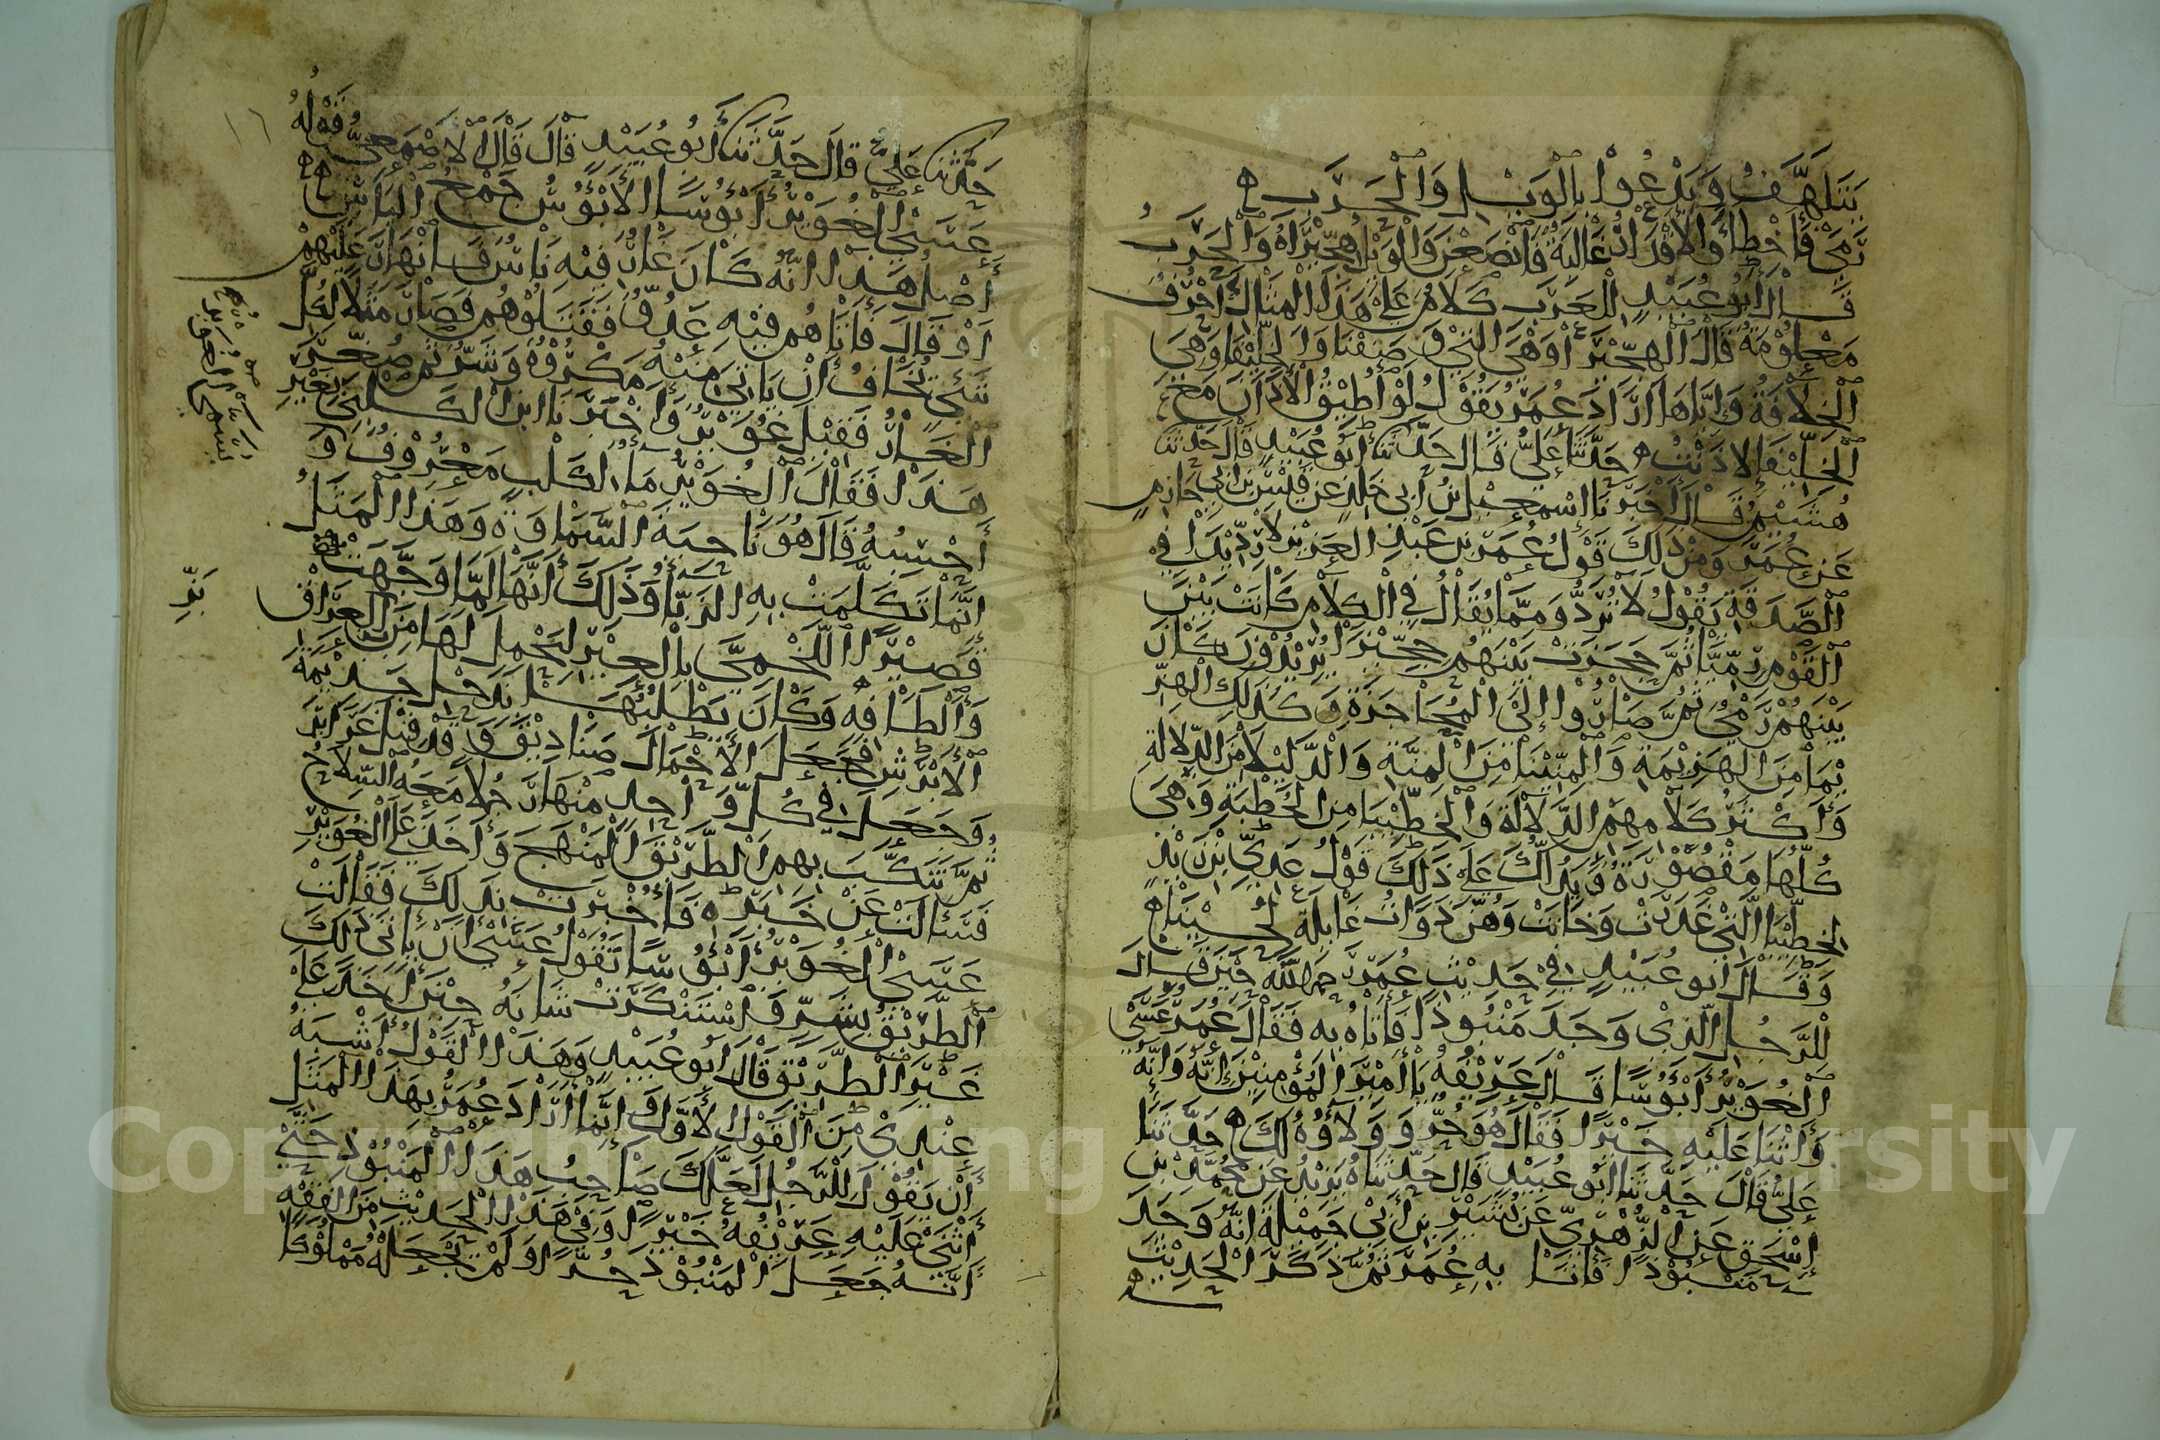 يَتَلَهَّفُ وَيَدْعُوا بِالْوَيْلِ وَالْحَرَبِ ه
رَمَى فَأَخْطَأَ وَالْأَقْدَارُ غَالِبَةٌ فَانْصَعْنَ وَالْوَيْلُ هِجِّيْرَاهُ وَالْحَرَبُ
قَالَ أَبُو عُبَيْدٍ لِلْعَرَبِ كَلَامٌ عَلَى هَذَا الْمِثَالِ أَحْرُفٌ
مَعْلُوْمَةٌ قَالُوا الْهِجِّيْرَى وَهِيَ الَّتِي وَصَفْنَا وَالْخِلِّيْفَا وَهِيَ
الْخِلَافَةُ وَإِيَّاهَا أَرَادَ عُمَرُ بِقَوْلِهِ لَوْ أُطِيْقُ الْأَذَانَ مَعَ
الْخِلِّيْفَا لَأَذَّنْتُ ه حَدَّثَنَا عَلِيٌّ قَالَ حَدَّثَنَا أَبُو عُبَيْدٍ قَالَ حَدَّثَنَا
هُشَيْمٌ قَالَ أَخْبَرَنَا إِسْمَعِيْلُ بْنُ أَبِي خَالِدٍ عَنْ قَيْسِ بْنِ أَبِي حَازِمٍ
عَنْ عُمَرَ وَمِنْ ذَلِكَ قَوْلُ عُمَرَ بْنِ عَبْدِ الْعَزِيْزِ لَا رِدِّيْدَا فِي
الصَّدَقَةِ يَقُوْلُ لَا تُرَدُّ وَمِمَّا يُقَالُ فِي الْكَلَامِ كَانَتْ بَيْنَ
الْقَوْمِ رِمِّيَّا ثُمَّ حَجَزَتْ بَيْنَهُمْ حِجِّيْزَا يُرِيْدُوْنَ كَانَ
بَيْنَهُمْ رَمْيٌ ثُمَّ صَارُوْا إِلَى الْمُحَاجَزَةِ وَكَذَلِكَ الْهِزِّ
يْمَا مِنَ الْهَزِيْمَةِ وَالْمِنِّيْنَا مِنَ الْمِنَّةِ وَالدِّلِّيْلَا مِنَ الدَّلَالَةِ
وَأَكْثَرُ كَلَامِهِمُ الدَّلَالَةُ وَالْخِطِّيْبَا مِنَ الْخُطْبَةِ وَهِيَ
كُلُّهَا مَقْصُوْرَةٌ وَيَدُلُّكَ عَلَى ذَلِكَ قَوْلُ عَدِيِّ بْنِ زَيْدٍ
لِخِطِّيْبَا الَّتِي غَدَرَتْ وَخَانَتْ وَهُنَّ ذَوَاتُ غَائِلَةٍ لُحِيْنَا ه
وَقَالَ أَبُو عُبَيْدٍ فِي حَدِيْثِ عُمَرَ رَحِمَهُ اللَّهُ حِيْنَ قَالَ
لِلرَّجُلِ الَّذِي وَجَدَ مَنْبُوذًا فَأَتَاهُ بِهِ فَقَالَ عُمَرُ عَسَى
الْغُوَيْرُ أَبْؤُسًا قَالَ عَرِيْفُهُ يَا أَمِيْرَ الْمُؤْمِنِيْنَ إِنَّهُ وَإِنَّهُ
وَأَثْنَا عَلَيْهِ خَيْرًا فَقَالَ هُوَ حُرٌّ وَوَلَاؤُهُ لَكَ ه حَدَّثَنَا
عَلِيٌّ قَالَ حَدَّثَنَا أَبُو عُبَيْدٍ قَالَ حَدَّثَنَاهُ يَزِيْدُ عَنْ مُحَمَّدِ بْنِ
إِسْحَقَ عَنِ الزُّهْرِيِّ عَنْ سُنَيْنِ بْنِ أَبِي جَمِيْلَةَ أَنَّهُ وَجَدَ
مَنْبُوْذًا فَأَتَا بِهِ عُمَرَ ثُمَّ ذَكَرَ الْحَدِيْثَ ه
حَدَّثَنَا عَلِيٌّ قَالَ حَدَّثَنَا أَبُو عُبَيْدٍ قَالَ قَالَ الْأَصْمَعِيُّ قَوْلُهُ
عَسَى الْغُوَيْرُ أَبْؤُسًا الْأَبْؤُسُ جَمْعُ الْبَأْسِ
أَصْلُ هَذَا أَنَّهُ كَانَ غَارٌ فِيْهِ نَاسٌ فَانْهَارَ عَلَيْهِمْ
أَوْ قَالَ فَأَتَاهُمْ فِيْهِ عَدُوٌّ فَقَتَلُوْهُمْ فَصَارَ مَثَلًا لِكُلِّ
شَيْءٍ تُخَافُ أَنْ يَأْتِيَ مِنْهُ مَكْرُوْهٌ وَشَرٌّ ثُمَّ صُغِّرَ
الْغَارُ فَقِيْلَ غُوَيْرٌ وَأَخْبَرَنَا ابْنُ الْكَلْبِيِّ بِغَيْرِ
هَذَا فَقَالَ الْغُوَيْرُ مَاءٌ لِكَلْبٍ مَعْرُوْفٌ وَ
أَحْسِبُهُ قَالَ هُوَ نَاحِيَةَ السَّمَاوَةِ وَهَذَا الْمَثَلُ
إِنَّمَا تَكَلَّمَتْ بِهِ الزَّبَّاءُ وَذَلِكَ أَنَّهَا لَمَّا وَجَّهَتْ
قَصِيْرًا اللَّخْمِيَّ بِالْعِيْرِ لِيَحْمِلَ لَهَا مِنْ بَزِّ الْعِرَاقِ
وَأَلْطَافِهِ وَكَانَ يَطْلُبُهَا بِذَحْلِ جَذِيْمَةَ
الْأَبْرَشِ فَجَعَلَ الْأَحْمَالَ صَنَادِيْقَ وَقَدْ قِيْلَ غَرَائِرَ
وَجَعَلَ فِي كُلِّ وَاحِدٍ مِنْهَا رَجُلًا مَعَهُ السِّلَاحُ
ثُمَّ تَنَكَّبَ بِهِمُ الطَّرِيْقَ الْمَنْهَجَ وَأَخَذَ عَلَى الْغُوَيْرِ
فَسَأَلَتْ عَنْ خَبَرِهِ فَأُخْبِرَتْ بِذَلِكَ فَقَالَتْ
عَسَى الْغُوَيْرُ أَبْؤُسًا تَقُوْلُ عَسَى أَنْ يَأْتِيَ ذَلِكَ
الطَّرِيْقُ بِشَرٍّ وَاسْتَنْكَرَتْ شَأْنَهُ حِيْنَ أَخَذَ عَلَى
غَيْرِ الطَّرِيْقِ قَالَ أَبُو عُبَيْدٍ وَهَذَا الْقَوْلُ أَشْبَهُ
عِنْدِي مِنَ الْقَوْلِ الْأَوَّلِ وَإِنَّمَا أَرَادَ عُمَرُ بِهَذَا الْمَثَلِ
أَنْ يَقُوْلَ لِلرَّجُلِ لَعَلَّكَ صَاحِبُ هَذَا الْمَنْبُوْذِ حَتَّى
أَثْنَى عَلَيْهِ عَرِيْفُهُ خَيْرًا وَفِي هَذَا الْحَدِيْثِ مِنَ الْفِقْهِ
أَنَّهُ جَعَلَ الْمَنْبُوْذَ حُرًّا وَلَمْ يَجْعَلْهُ مَمْلُوْكًا
بَزِّ